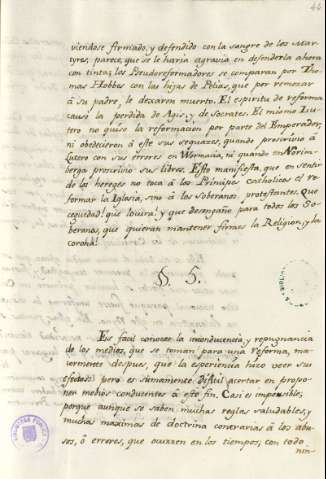 46
viendose firmado, y defendido con la sangre de los Mar-
tyres, parece, que se le haria agravia en defenderla ahora
con tinta; los Pseudoreformadores se comparan por Tho-
mas Hobbes con las hijas de Pelias, que por remozar
à su padre, le dexaron muerto. El espiritu de reforma
causò la perdida de Agis, y de Socrates. El mismo Lu-
tero no quiso la reformacion por parte del Emperador,
ni obedecieron à este sus sequazes, quando proscrivio à
Lutero con sus errores en Wormacia, ni quando en Norim-
berga proscrivio sus libros. Esto manifiesta, que en sentir
de los hereges no toca à los Principes catholicos el re-
formar la Iglesia, sino à los Soberanos protestantes. Que
ceguedad! que locura! y que desengaño para todos los So-
beranos, que quieran mantener firmes la Religion, y la
corona!
§. 5.
Es facil conocer la inconducencia, y repugnancia
de los medios, que se toman para una reforma, ma-
iormente despues, que la experiencia hizo veer sus
efectos: pero es sumamente dificil acertar en propo-
ner medios conducentes à este fin. Casi es imposible;
porque aunque se saben muchas reglas saludables, y
muchas maximas de doctrina contrarias à los abu-
sos, ò errores, que ocurren en los tiempos, con todo
nin-